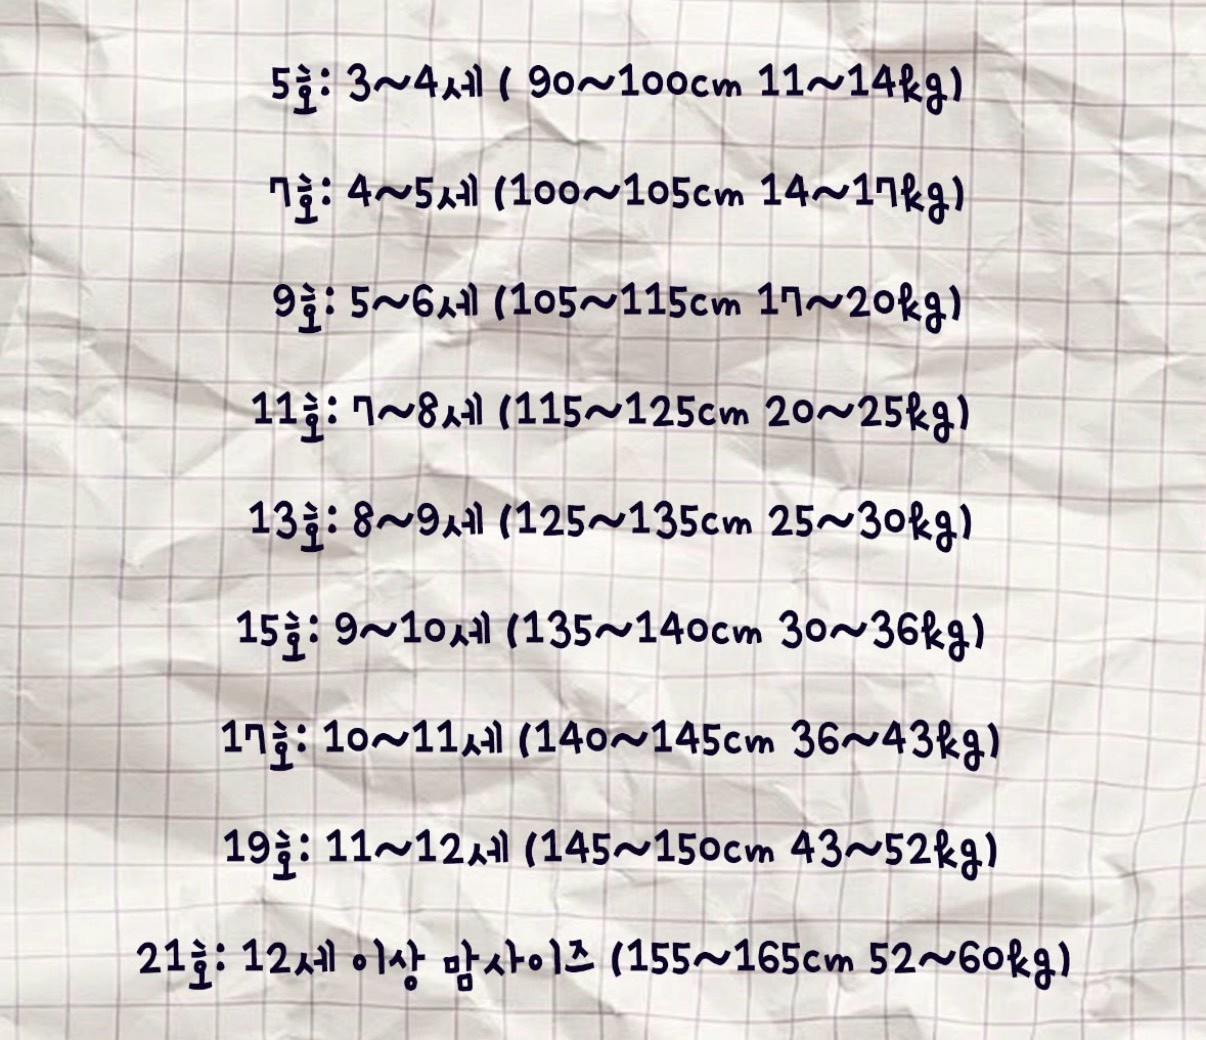 5호: 3~4세 ( 90~100cm 11~14kg)
7호: 4~5세 (100~105cm 14~17kg)
9호: 5~6세 (105~115cm 17~20kg)
11호: 7~8세 (115~125cm 20~25kg)
13호: 8~9세 (125~135cm 25~30kg)
15호: 9~10세 (135~140cm 30~36kg)
17호: 10~11세 (140~145cm 36~43kg)
19호: 11~12세 (145~150cm 43~52kg)
21호: 12세 이상 맘사이즈 (155~165cm 52~60kg)